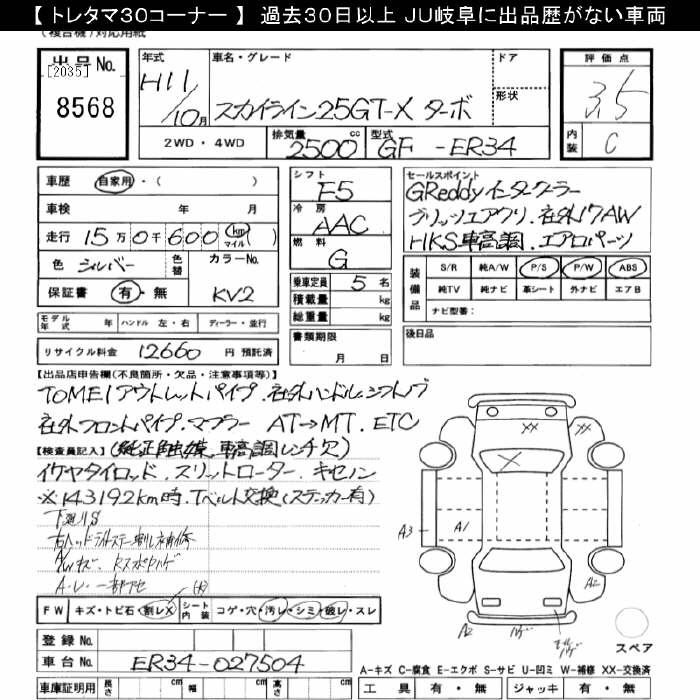 【 トレタマ30コーナー 】 過去30日以上 JU岐阜に出品歴がない車両
(複合機)対応用紙
出品No.
[2035]
8568
年式
H11/10月
車名・グレード
スカイライン25GT-X ターボ
ドア
形状
2WD・4WD
排気量
2500cc
型式
GF-ER34
評価点
3.5
内装
C
車歴
自家用・( )
車検 年 月
走行 15万0千600 km マイル( )
色 シルバー
色替
カラーNo.
KV2
保証書 有・無
モデル年式 年 ハンドル 左・右 ディーラー・並行
リサイクル料金 12660 円 預託済
シフト
F5
冷房
AAC
燃料
G
乗車定員 5 名
積載量 kg
総重量 kg
書類期限
月 日
セールスポイント
GReddyインタークーラー
ブリッツエアクリ.社外17AW
HKS車高調.エアロパーツ
装備品
S/R 純A/W P/S P/W ABS
純TV 純ナビ 革シート 外ナビ エアB
ナビ型番:
後日品
【出品店申告欄(不良箇所・欠品・注意事項等)】
TOMEIアウトレットパイプ.社外ハンドル.シフトノブ
社外フロントパイプ.マフラー AT→MT.ETC
【検査員記入】(純正触媒.車高調レンチ欠)
イケヤタイロッド.スリットローター.キセノン
※143192km時.Tベルト交換(ステッカー有)
下廻りS
右ヘッドライトステー割レ補修
A.レ.一部アセ
XX
XX
X
A3
A1
A2
A2
FW キズ・トビ石 割レX シート内装 コゲ・穴・汚レ・シミ・破レ・スレ
登録No.
車台No. ER34-027504
車庫証明用 長さ cm 幅 cm 高さ cm
スペア
A-キズ C-腐食 E-エクボ S-サビ U-凹ミ W-補修 XX-交換済
工具 有・無 ジャッキ 有・無